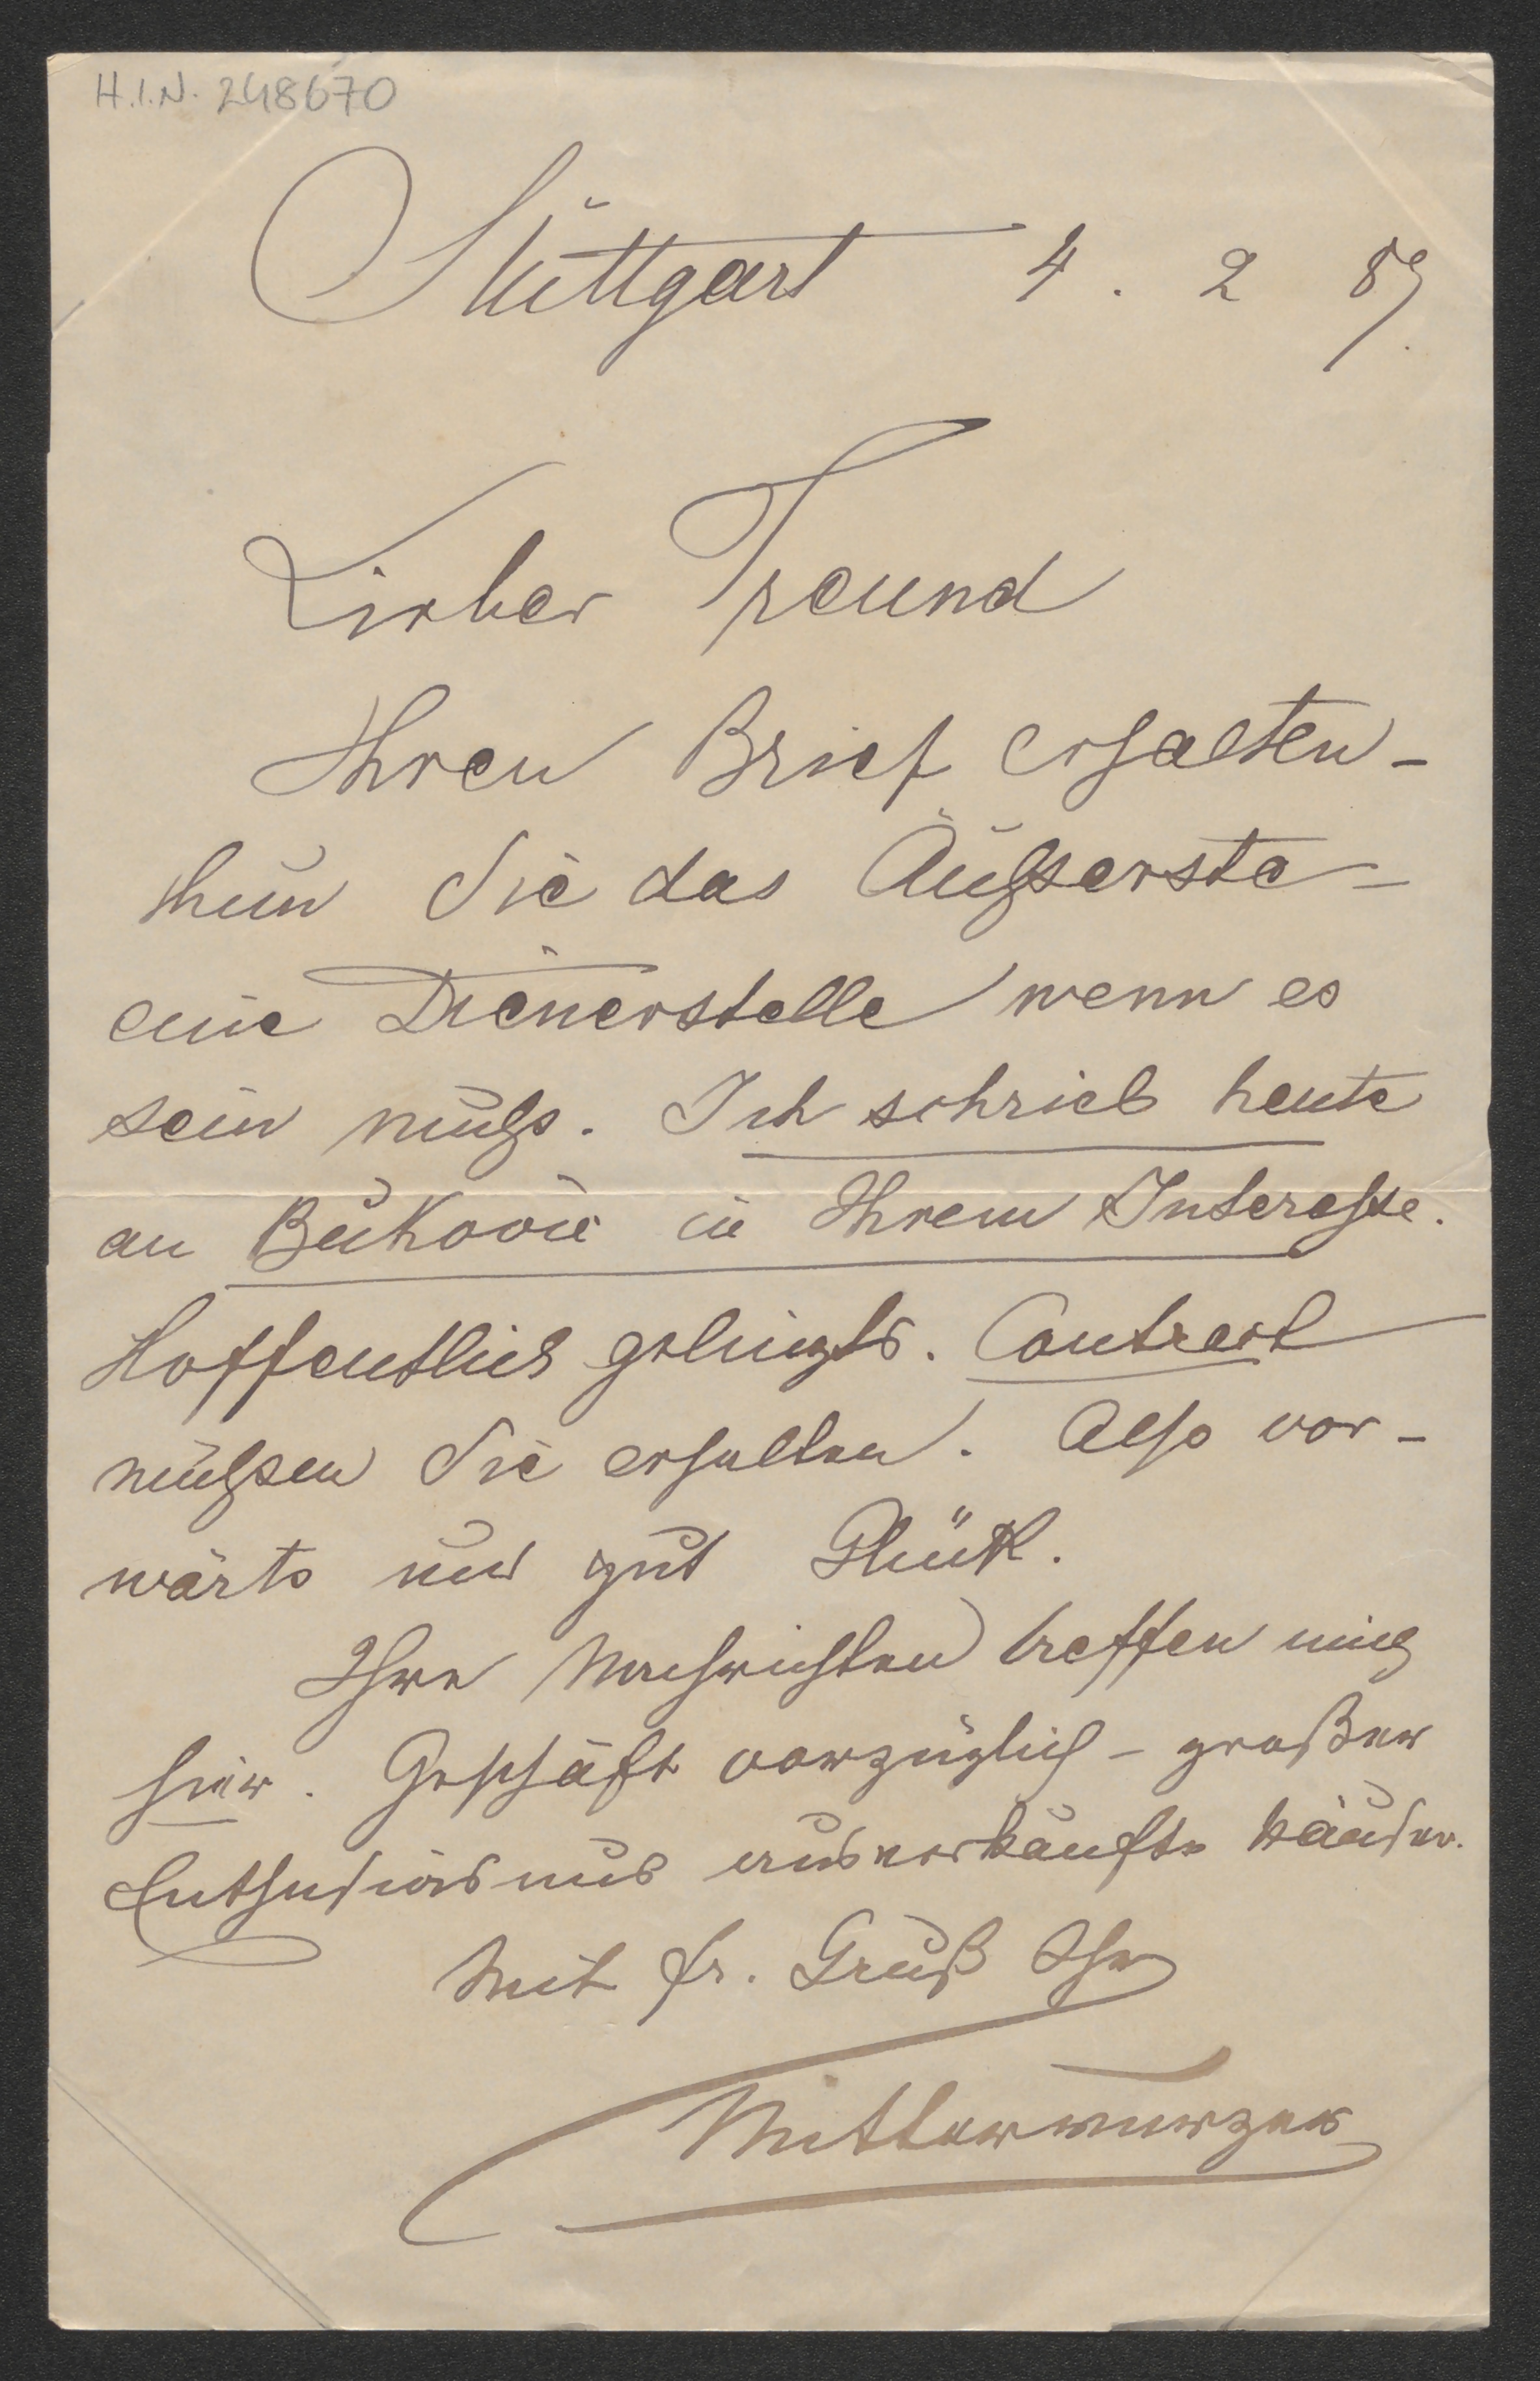 H.I.N. 248670
Stuttgart 4. 2 89.
Lieber Freund
Ihren Brief erhalten –
thun Sie das Äußerste –
eine Dienerstelle wenn es
sein muß. Ich schrieb heute
an Bukovic in Ihrem Interesse.
Hoffentlich gelingts. Contract
müßen Sie erhalten. Also vor-
wärts und gut Glück.
Ihre Nachrichten treffen mich
hier. Geschäft vorzüglich – großer
Enthusiasmus ausverkaufte Häuser.
Mit fr. Gruß Ihr
Mitterwurzer